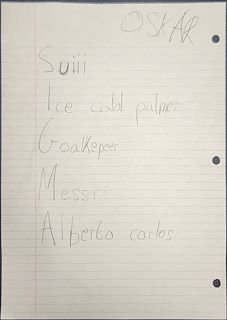 OSKAR
Suiii
Ice cold palmer
Goalkeper
Messi
Alberto carlos